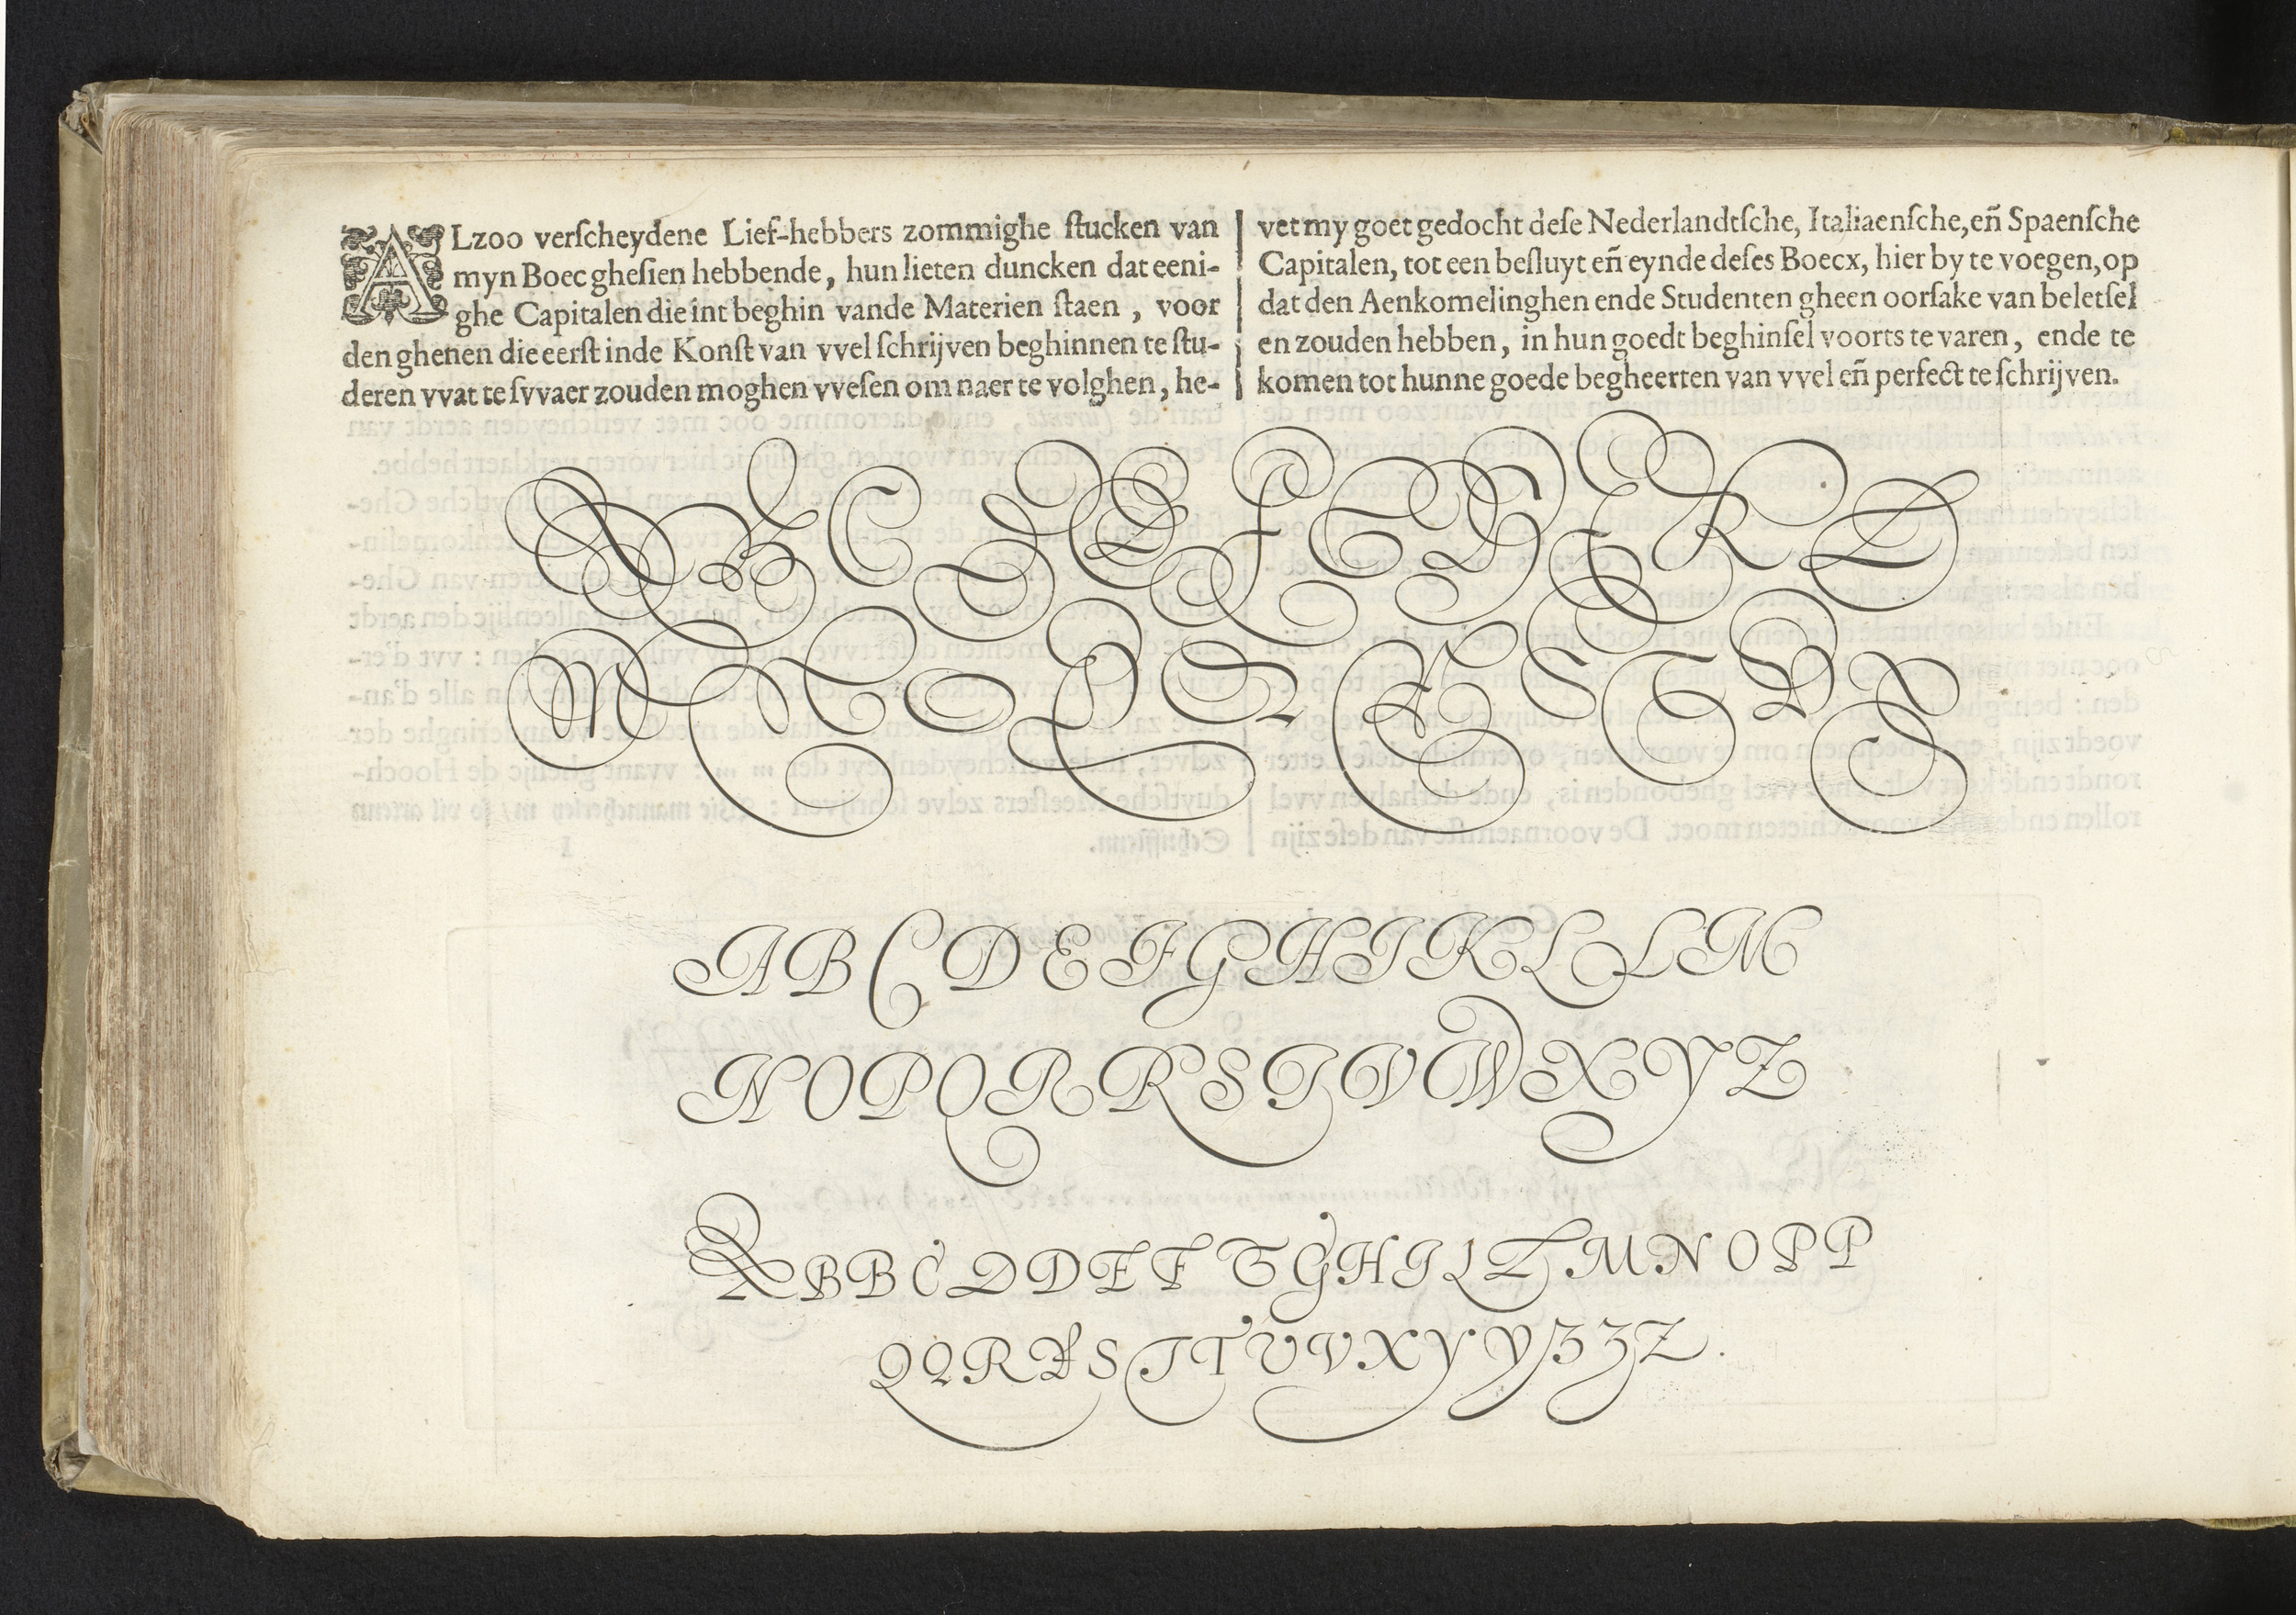 ALzoo verſcheydene Lief-hebbers zommighe ſtucken van
myn Boec gheſien hebbende, hun lieten duncken dat eeni-
ghe Capitalen die int beghin vande Materien ſtaen, voor
den ghenen die eerſt inde Konſt van vvel ſchrijven beghinnen te ſtu-
deren vvat te ſvvaer zouden moghen vveſen om naer te volghen, he-
vet my goet gedocht deſe Nederlandtſche, Italiaenſche, eñ Spaenſche
Capitalen, tot een beſluyt eñ eynde deſes Boecx, hier by te voegen, op
dat den Aenkomelinghen ende Studenten gheen oorſake van beletſel
en zouden hebben, in hun goedt beghinſel voorts te varen, ende te
komen tot hunne goede begheerten van vvel eñ perfect te ſchrijven.
A B C D E F G H I K L
M N O P Q R S T V X
A B C D E F G H I K L L M
N O P Q R R S T V W X Y Z
A B B C D D E F G G H I L L M N O P P
Q Q R R S T T U V X Y Y Z Z Z.